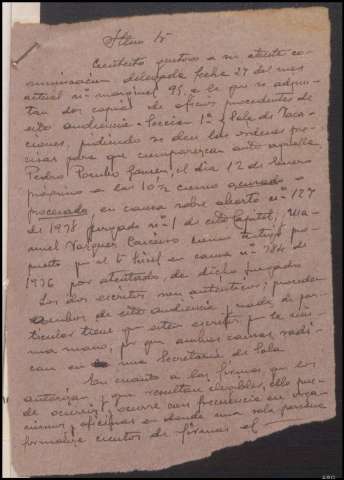 Iltmo Sr
Contesto gustoso a su atenta co-
municación delegada fecha 27 del mes
actual nº marginal 95, a la que se adjun-
tan dos copias de oficios procedentes de
esta Audiencia - Sección 1ª y Sala de Vaca-
ciones, pidiendo se den las ordenes pre-
cisas para que comparezcan ante aquella
Pedro el dia 12 de Enero
próximo a las 10½ como acusado o
procesado, en causa sobre aborto nº 127
de 1978 Juzgado nº 1 de esta Capital, y Ma-
nuel Vazquez como testigo pro-
puesto por el Fiscal en causa nº 784 de
1976 por atentado, de dicho Juzgado
Los dos escritos son autenticos; proceden
ambos de esta Audiencia y nada de par-
ticular tiene que esten escritos por la mis-
ma mano, por que ambas causas radi-
can en una Secretaria de Sala
En cuanto a las firmas que los
autorizan y que resultan ilegibles, ello pue-
de ocurrir y ocurre con frecuencia en orga-
nismos y oficinas en donde una sola persona
formaliza cientos de firmas al